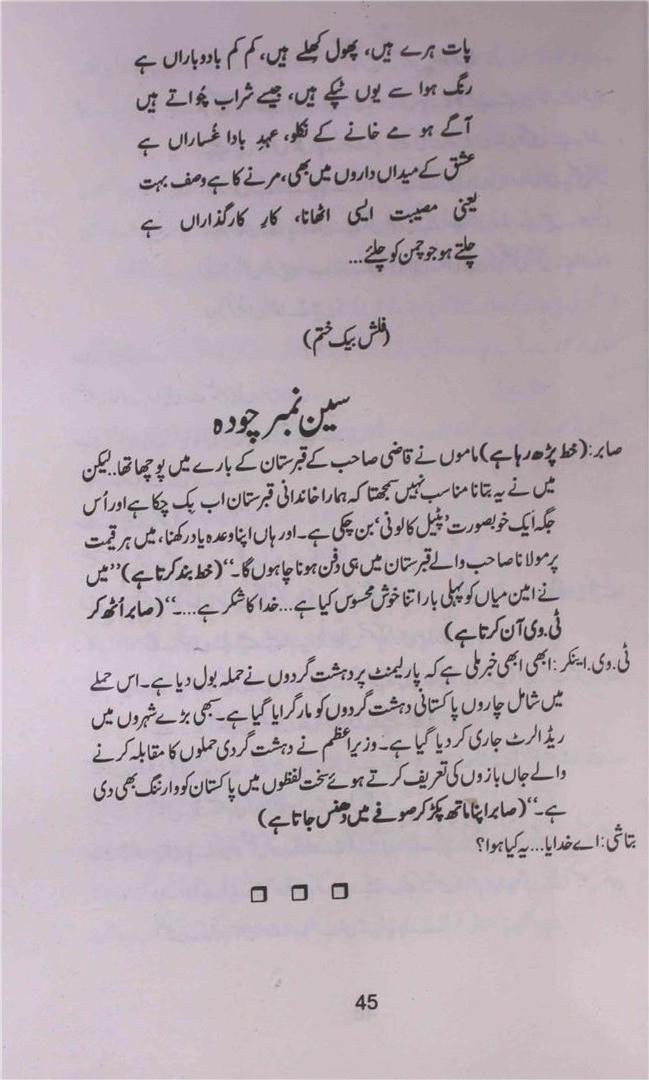 پات ہرے ہیں، پھول کھلے ہیں، کم کم بادوباراں ہے
رنگ ہوا سے یوں ٹپکے ہیں، جیسے شراب چُواتے ہیں
آگے ہو مے خانے کے نکلو، عہدِ بادا غُساراں ہے
عشق کے میداں داروں میں بھی، مرنے کا ہے وصف بہت
یعنی مصیبت ایسی اٹھانا، کارِ کارگذاراں ہے
چلتے ہو جو چمن کو چلئے...
(فلش بیک ختم)
سین نمبر چودہ
صابر: (خط پڑھ رہا ہے) ماموں نے قاضی صاحب کے قبرستان کے بارے میں پوچھا تھا..لیکن
میں نے یہ بتانا مناسب نہیں سمجھتا کہ ہمارا خاندانی قبرستان اب بِک چکا ہے اور اُس
جگہ ایک خوبصورت ’پٹیل کالونی‘ بن چکی ہے۔ اور ہاں اپنا وعدہ یاد رکھنا، میں ہر قیمت
پر مولانا صاحب والے قبرستان میں ہی دفن ہونا چاہوں گا۔‘‘ (خط بند کرتا ہے) ’’میں
نے امین میاں کو پہلی بار اتنا خوش محسوس کیا ہے...خدا کا شکر ہے...۔‘‘ (صابر اُٹھ کر
ٹی۔وی آن کرتا ہے)
ٹی۔وی۔اینکر: ابھی ابھی خبر ملی ہے کہ پارلیمنٹ پر دہشت گردوں نے حملہ بول دیا ہے۔ اس حملے
میں شامل چاروں پاکستانی دہشت گردوں کو مار گرایا گیا ہے۔ سبھی بڑے شہروں میں
ریڈ الرٹ جاری کر دیا گیا ہے۔ وزیر اعظم نے دہشت گردی حملوں کا مقابلہ کرنے
والے جاں بازوں کی تعریف کرتے ہوئے سخت لفظوں میں پاکستان کو وارننگ بھی دی
ہے۔‘‘ (صابر اپنا ماتھ پکڑ کر صوفے میں دھنس جاتا ہے)
بتاشی: اے خدایا...یہ کیا ہوا؟
45